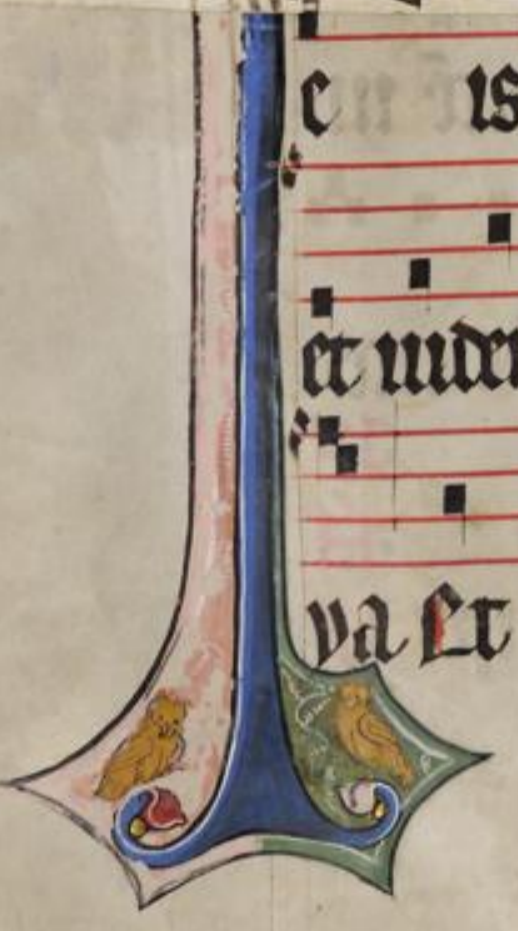 c is
et uider
va Et